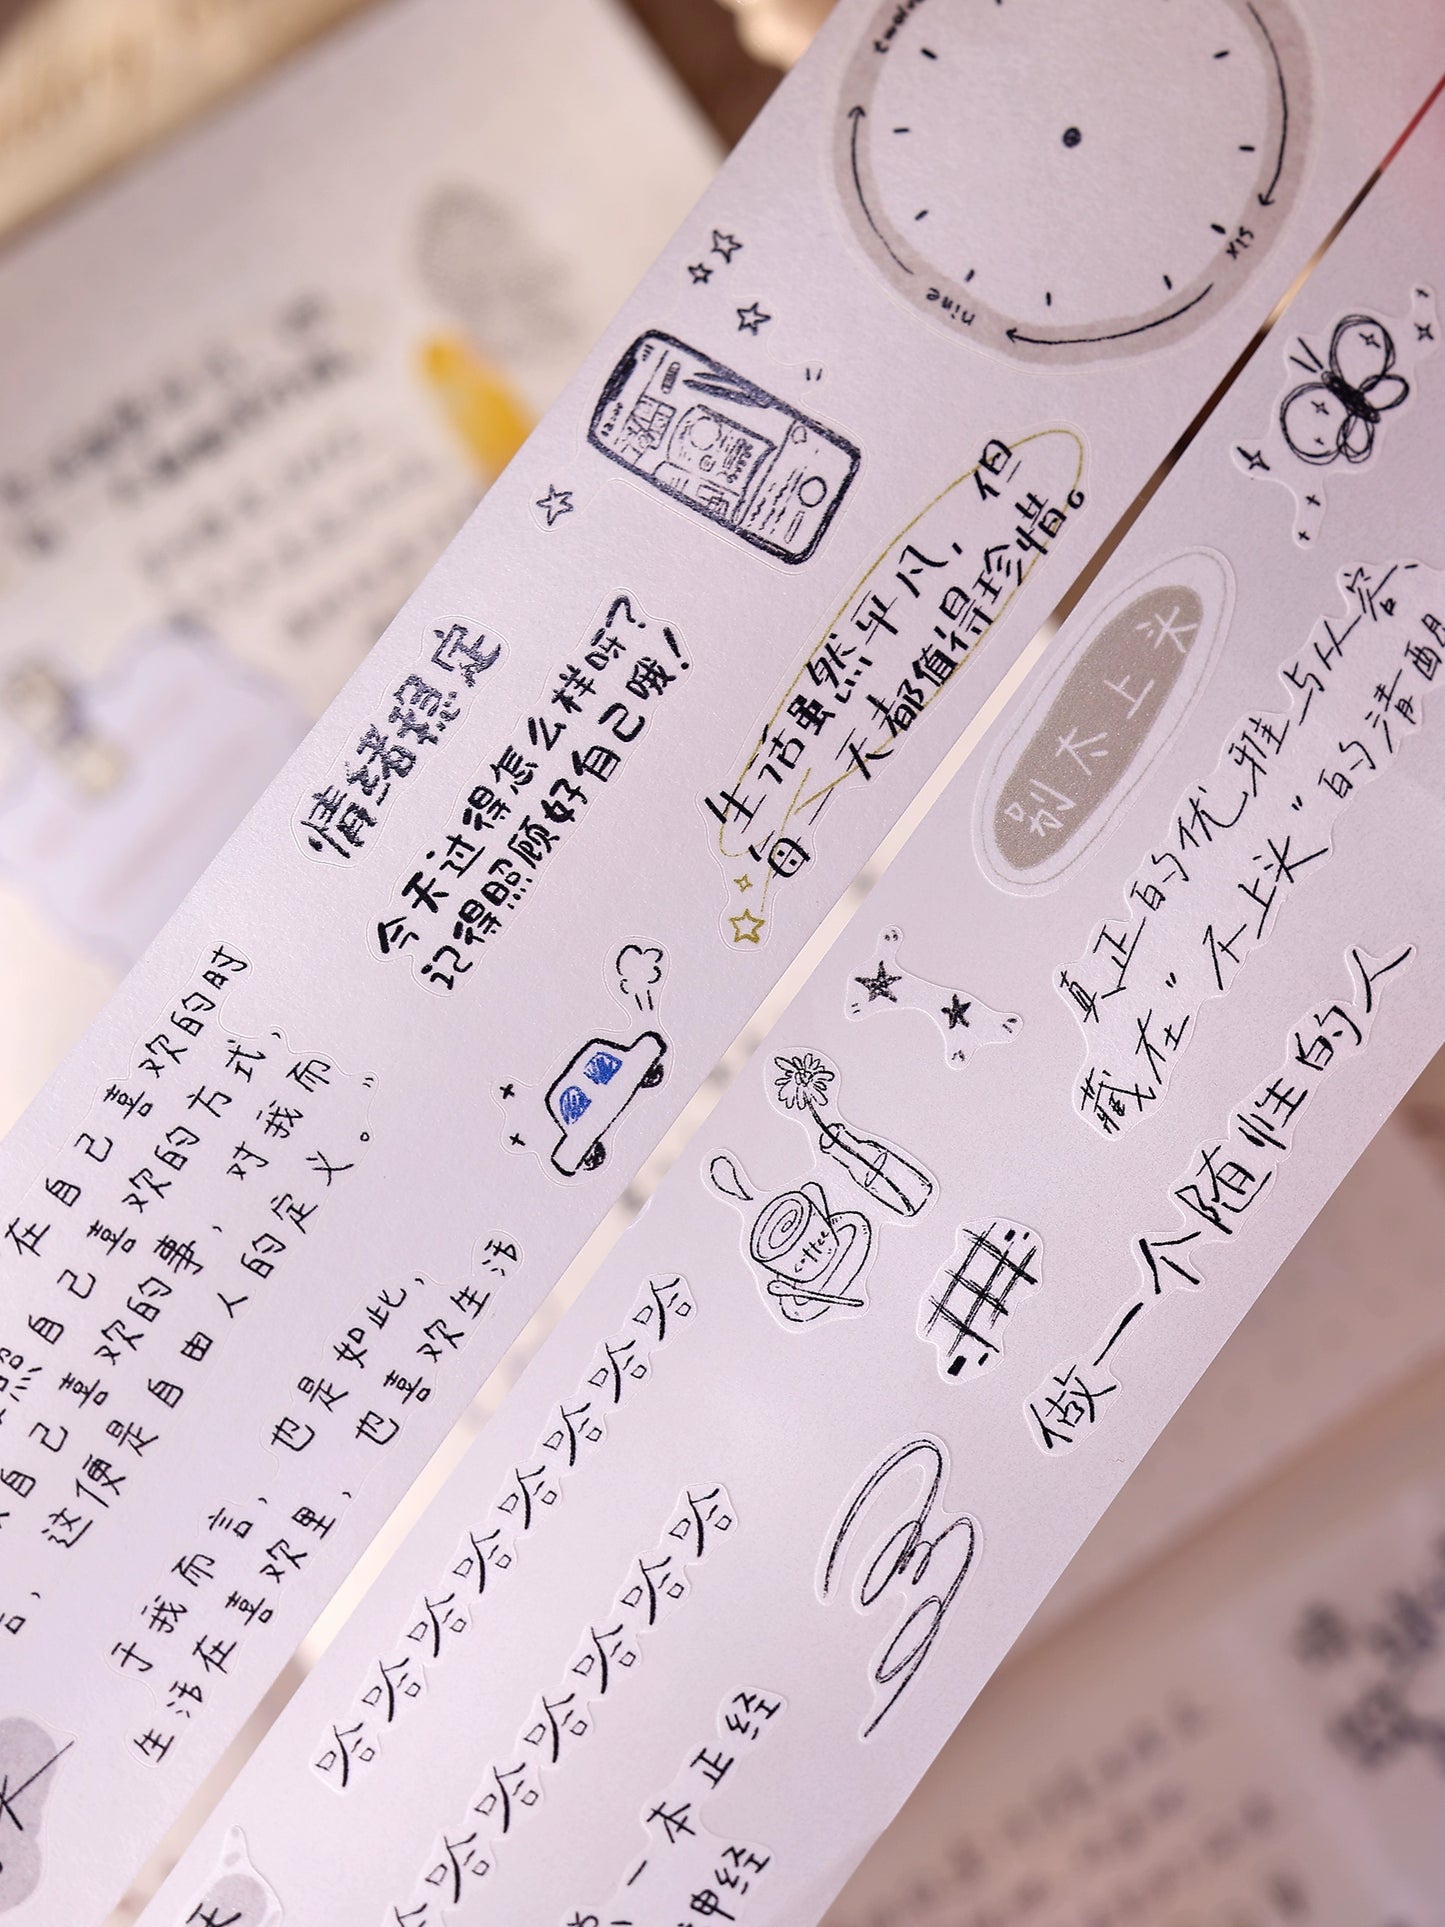 twelve
six
nine
12:00
生活虽然平凡，但
每一天都值得珍惜。
情绪稳定
今天过得怎么样呀？
记得照顾好自己哦！
在自己喜欢的时
照自己喜欢的方式，
自己喜欢的事，对我而
这便是自由人的定义。
于我而言，也是如此，
生活在喜欢里，也喜欢生活
别太上头
真正的优雅与从容、
藏在"不上头"的清醒
做一个随性的人
coffee
哈哈哈哈哈哈哈哈
哈哈哈哈哈哈哈
一本正经
神经